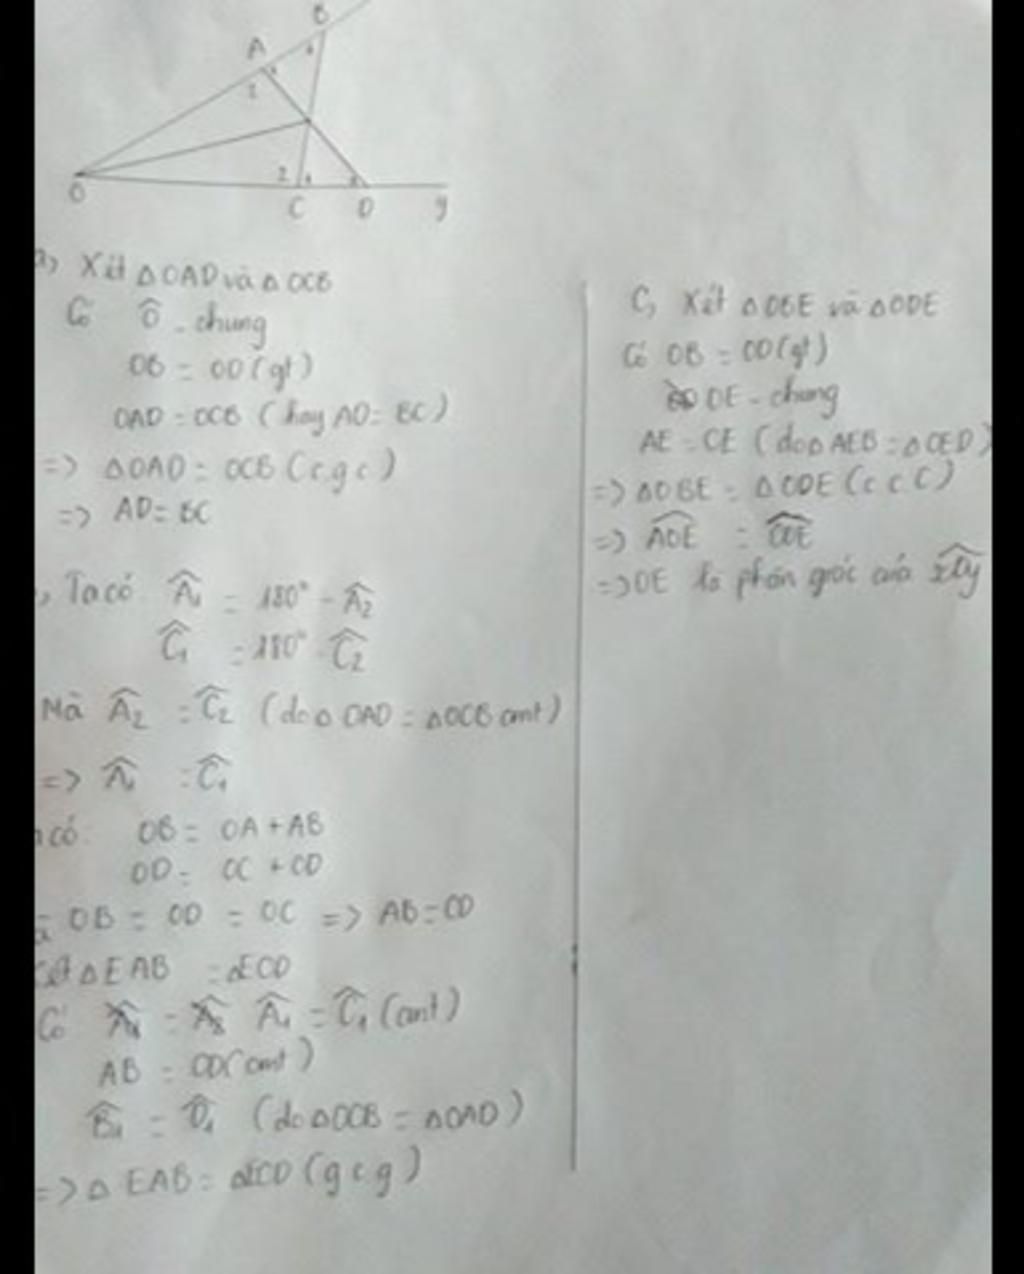 B
A
1
1
2
O
2 1
C D y
a, Xét △OAD và △OCB
Có Ô - chung
OB = OD (gt)
OAD = OCB (hay AD = BC)
=> △OAD = OCB (c.g.c)
=> AD = BC
, Ta có Â₁ = 180° - Â₂
Ĉ₁ = 180° - Ĉ₂
Mà Â₂ = Ĉ₂ (do △OAD = △OCB cmt)
=> Â₁ = Ĉ₁
có: OB = OA + AB
OD = OC + CD
OB = OD = OC => AB = CD
△EAB = △ECD
Có Â₁ = Ĉ₁ (cmt)
AB = CD (cmt)
B̂₁ = D̂₁ (do △OCB = △OAD)
=> △EAB = △ECD (g c g)
C, Xét △OBE và △ODE
Có OB = OD (gt)
OE - chung
AE = CE (do △AEB = △CED)
=> △OBE = △ODE (c c c)
=> AOE = COE
=> OE là phân giác của xOy